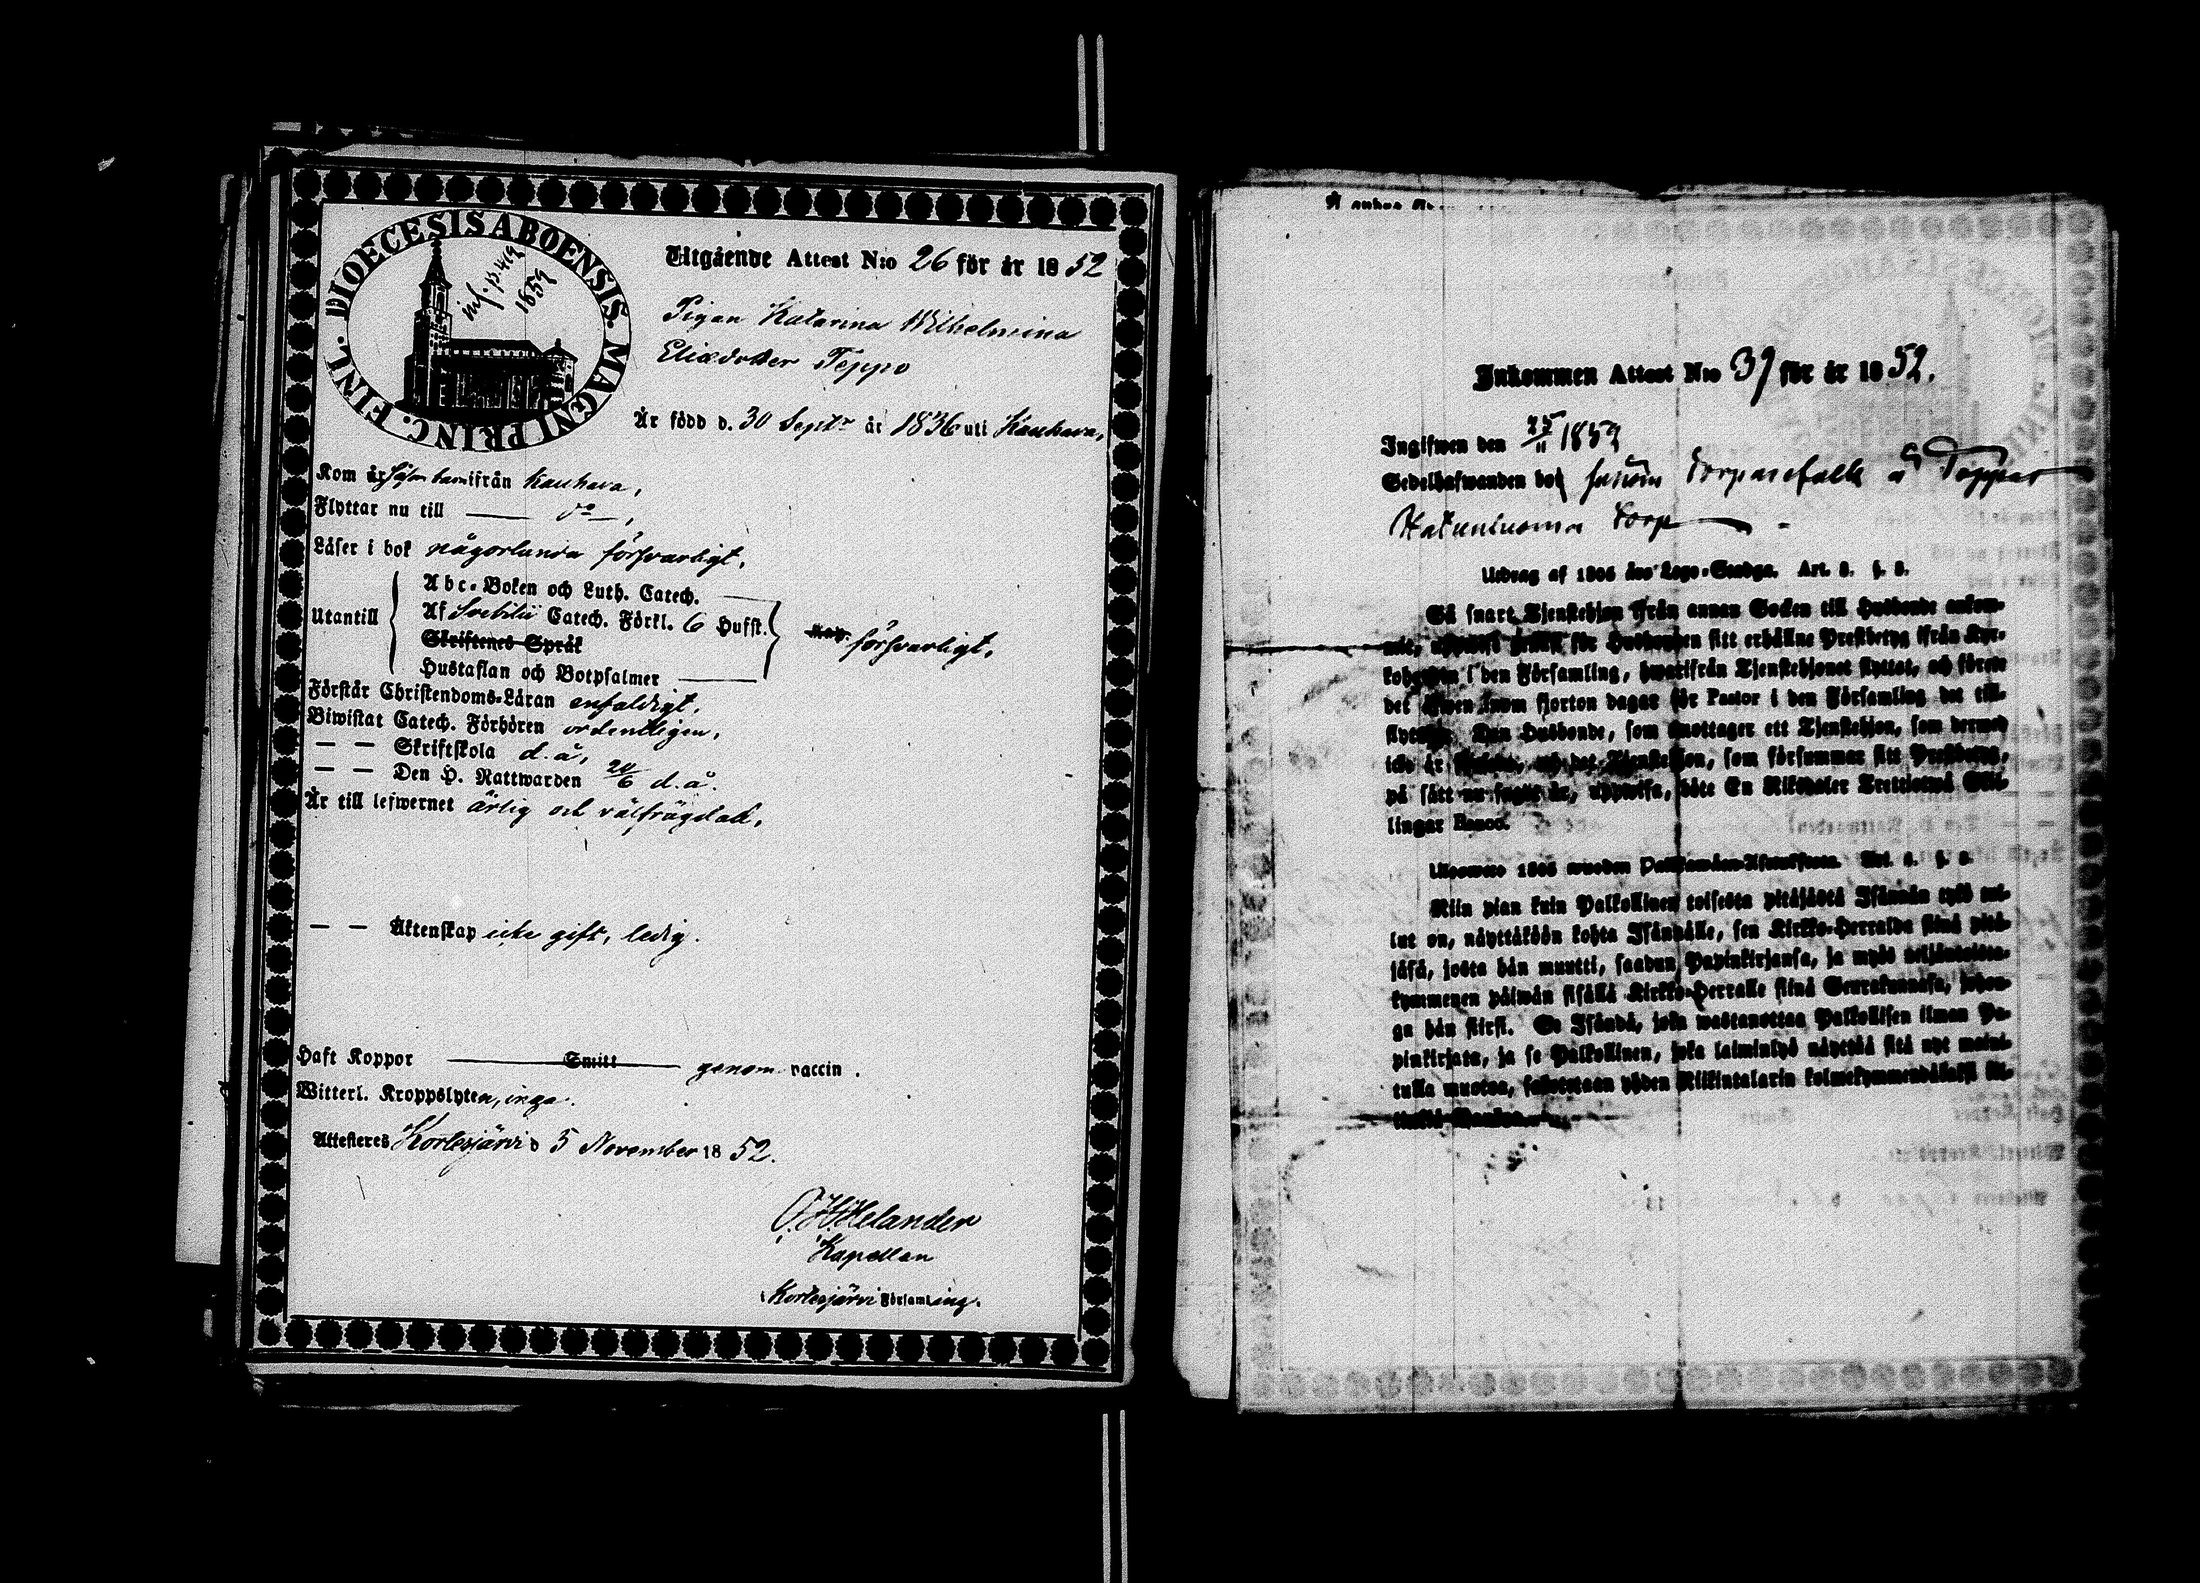 DIOECESIS ABOENSIS. MAGNI PRINC. FINL.
inf. p. 419
1852
Utgående Attest N:o 26 för år 1852
Pigan Katarina Wilhelmina
Eliædotter Teppo
Är född d. 30 Septr år 1836 uti Kauhava,
Kom år såsom barn ifrån Kauhava,
Flyttar nu till — do —,
Läser i bok någorlunda försvarligt,
Utantill
Abc-Boken och Luth. Catech.
Af Svebilii Catech. Förkl. 6 Hufst.
Skriftenes Språk
Hustaflan och Botpsalmer
försvarligt,
Förstår Christendoms-Läran enfaldigt,
Biwistat Catech. Förhören ordentligen,
— — Skriftskola d. å,
— — Den H. Nattwarden 20/6 d. å.
Är till lefwernet ärlig och välfrägdad,
— — Äktenskap icke gift, ledig.
Haft Koppor Smitt genom vaccin.
Witterl. Kroppslyten, inga.
Attesteres Kortesjärvi d 5 November 1852.
O. H. Helander
Kapellan
Kortesjärvi Församling.
Inkommen Attest N:o 39 för år 1852.
Ingifwen den 25/11 1852
Sedelhafwanden bor såsom Torparefolk å Teppos
Torp
Utdrag af 1805 års Lego-Stadga. Art. 8. §. 8.
Så snart Tjenstehjon ifrån annan Socken till Husbonde ankom-
mit, uppwise genast för Husbonden sitt erhållne Prestbetyg ifrån Kyr-
koherden i den Församling, hwarifrån Tjenstehjonet flyttat, och förete
det äfwen inom fjorton dagar för Pastor i den Församling det till-
flyttar. Den Husbonde, som mottager ett Tjenstehjon, som dermed
icke är försedt, och det Tjenstehjon, som försummar sitt Prestbetyg,
på sätt nu sagdt är, uppwisa, böte En Riksdaler Trettiotwå Skil-
lingar Banco.
Niin pian kuin Palkollinen toisesta pitäjästä Isännän tykö tul-
lut on, näyttäköön kohta Isännälle, sen Kirkko-Herralda siinä pitä-
jäsä, josta hän muutti, saadun Papinkirjansa, ja myös neljäntoista-
kymmenen päiwän sisällä Kirkko-Herralle siinä Seurakunnasa, johon-
ga hän siirsi. Se Isändä, joka wastanottaa Palkollisen ilman Pa-
pinkirjata, ja se Palkollinen, joka laiminlyö näyttää sitä nyt mainit-
tulla muotoa, sakotetaan yhden Riikintalarin kolmekymmendäkaksi kil-